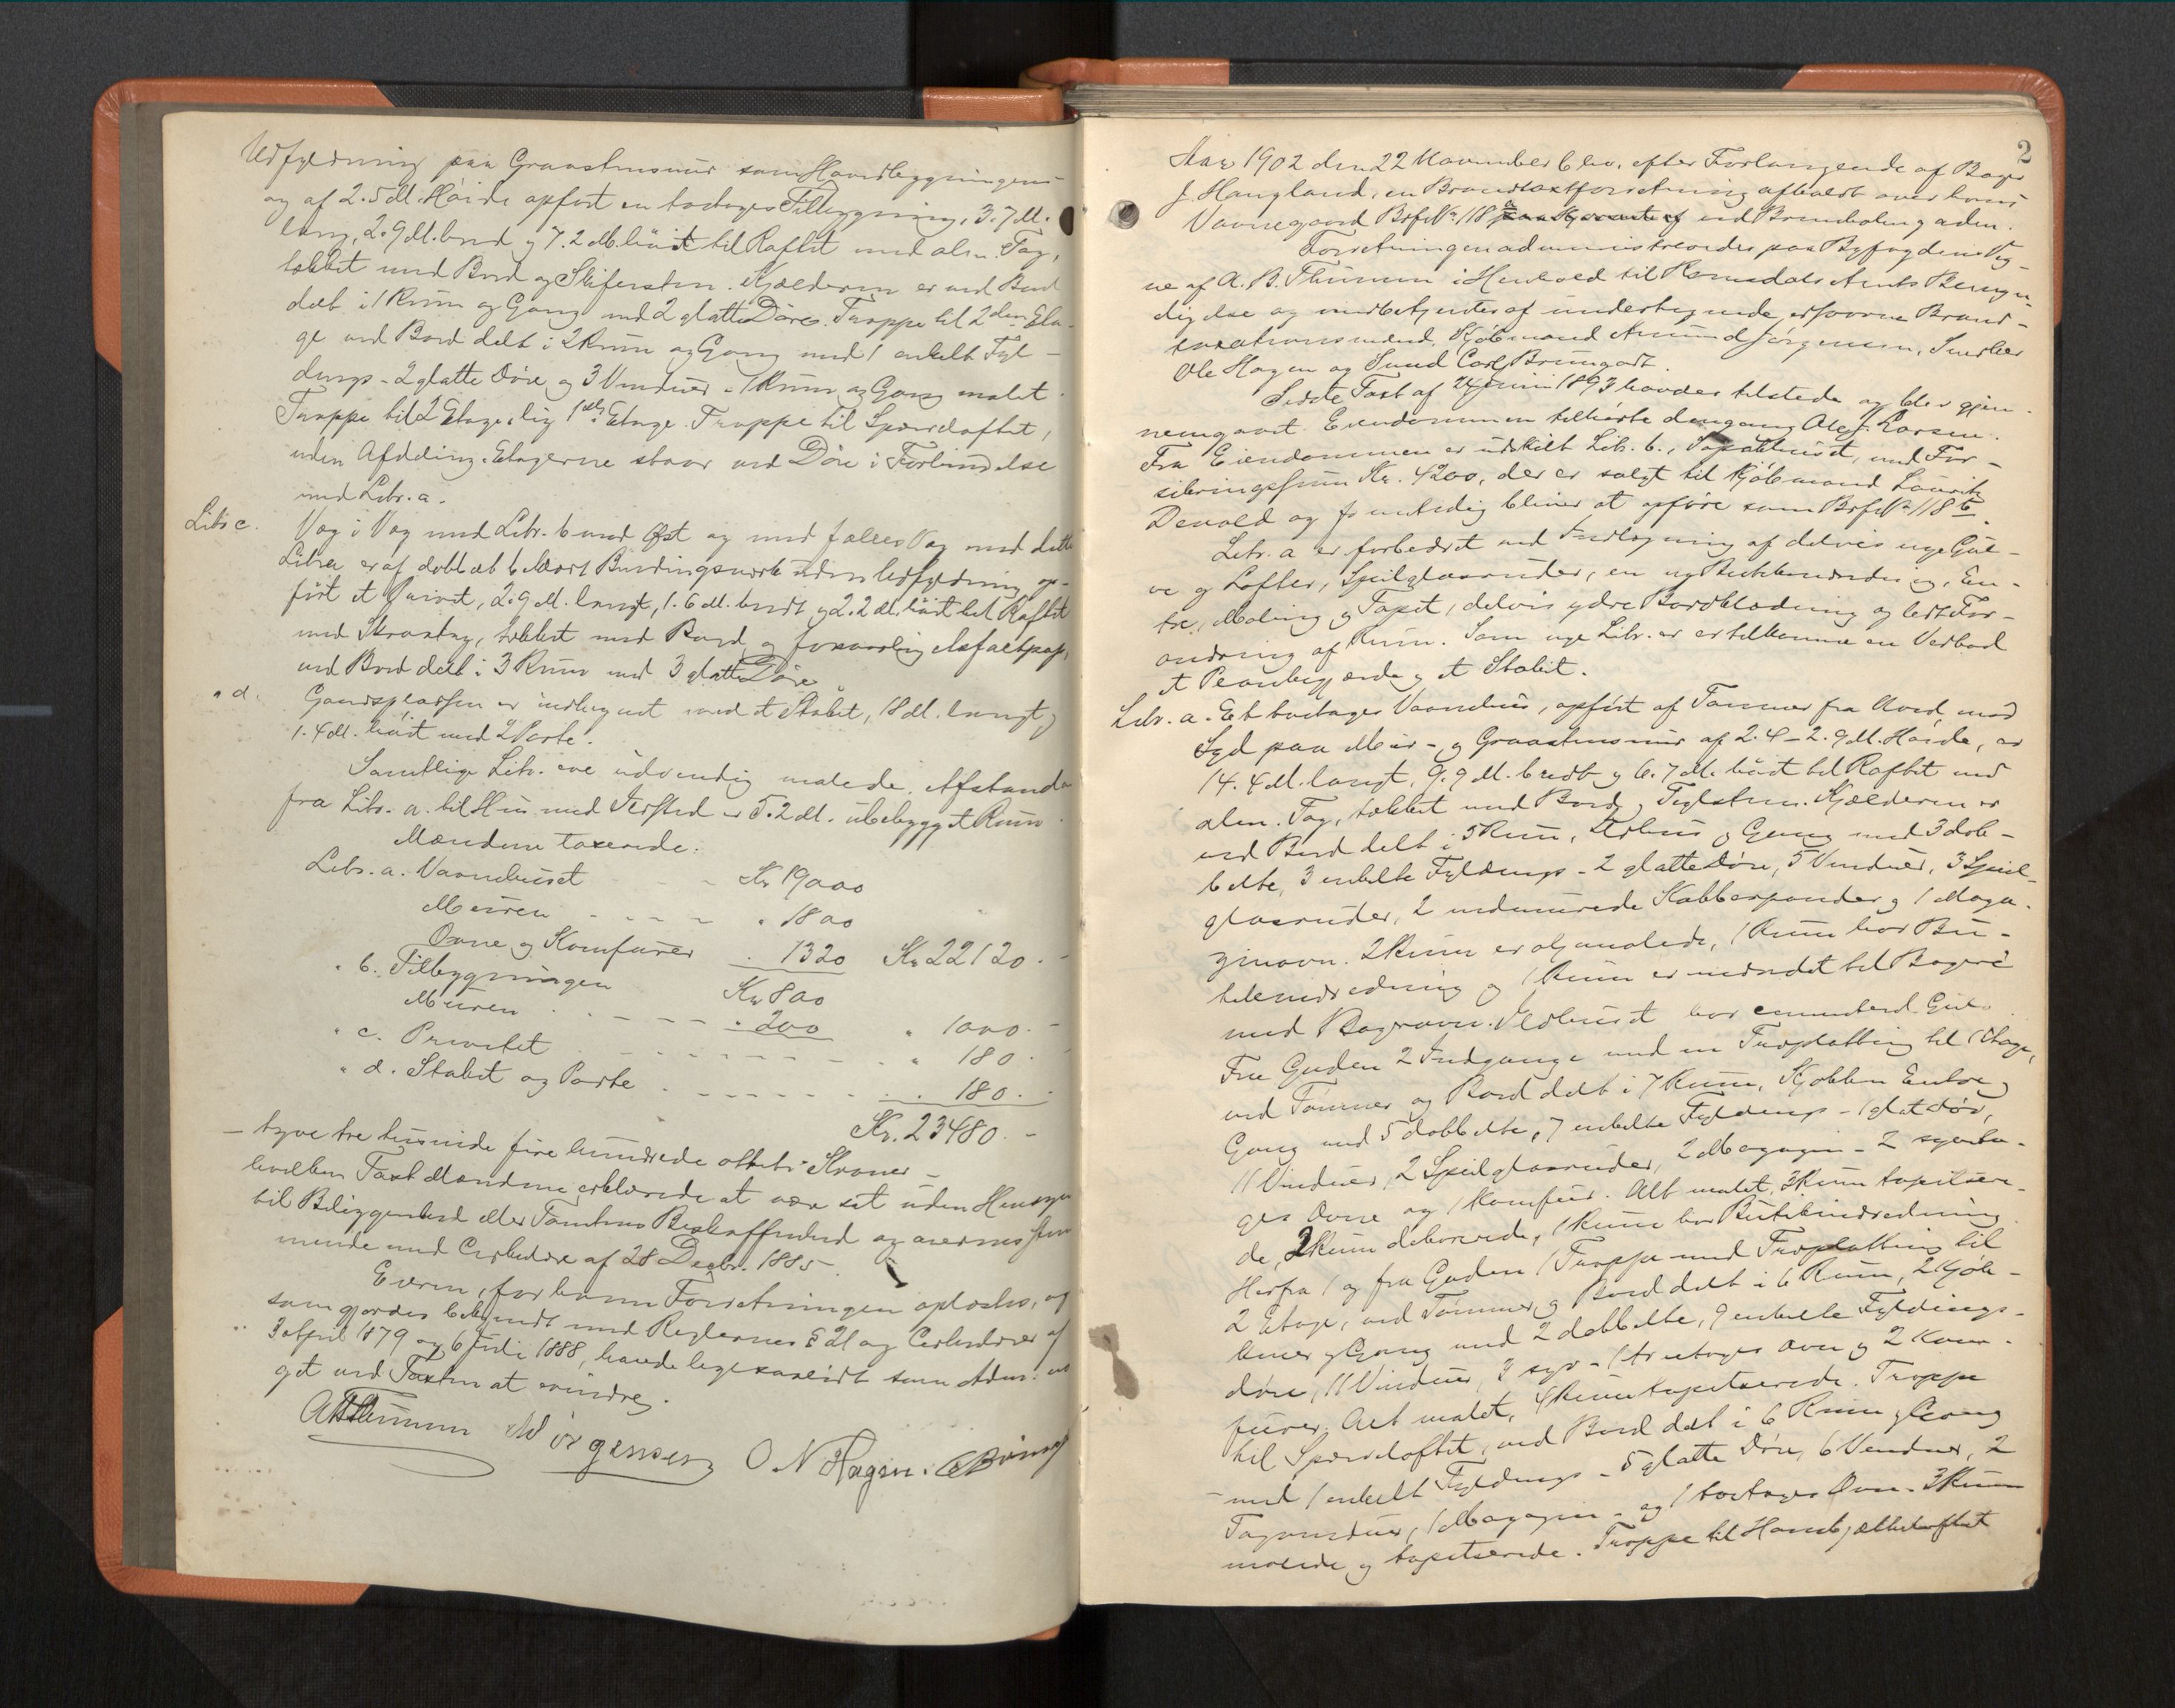 Udfyldning paa Graastensmur som Hovedbygningens
og af 2.5 M. Høide opført en toetages Tilbygning, 3.7 M.
lang, 2.9 M. bred og 7.2 M. høit til Raftet med alm. Tag,
tækket med Bord og Skifersten. Kjælderen er ved Bord
delt i 1 Rum og Gang med 2 glatte Døre. Trappe til 2den Eta-
ge ved Bord delt i 2 Rum og Gang med 1 enkelt Fyl-
dings- 2 glatte Døre og 3 Vinduer - 1 Rum og Gang malet.
Trappe til 2 Etage, lig 1ste Etage. Trappe til Spærreloftet,
uden Afdeling. Etagerne staar ved Døre i Forbindelse
med Litr. a.
Litr c. Væg i Væg med Litr. b mod Øst og med fælles Væg med dette
Litra er af dobbelt bklædt Bindingsværk uden Udfyldning op-
ført et Privet, 2.9 M. langt, 1.6 M. bredt og 2.2 M. høit til Raftet
med Skraatag, tækket med Bord og forsvarlig Asfaltpap,
ved Bord delt i 3 Rum med 3 glatte Døre.
" d. Gaardspladsen er indhegnet med et Stakit, 18 M. langt og
1.4 M. høit med 2 Porte.
Samtlige Litr. ere udvendig malede. Afstanden
fra Litr. a. til Hus med Ildsted er 5.2 M. ubebygget Rum.
Mændene taxerede:
Litr. a. Vaanehuset - - Kr 19000
Muren - - - - " 1800
Ovne og Komfurer " 1320 Kr 22120. -
" b. Tilbygningen Kr 800
Muren - - - - " 200 " 1000. -
" c. Privetet - - - - - - " 180. -
" d. Stakit og Porte - - - - - - " 180. -
Kr. 23480. -
- tyve tre tusinde fire hundrede otteti Kroner -
hvilken Taxt Mændene erklærede at være sat uden Hensyn
til Beliggenhed eller Tomtens Beskaffenhed og overensstem
mende med Cirkulære af 28 Decbr. 1885.
Eieren, for hvem Forretningen oplæstes, og
som gjordes bekjendt med Reglernes § 21 og Cirkulærer af
3 April 1879 og 6 Juli 1888, havde ligesaalidt som Adm. no
get ved Taxten at erindre.
A B Thunem AdJørgensen O N Hagen. C Bring
2
Aar 1902 den 22 November blev, efter Forlangende af Bager
J. Haugland, en Brandtaxtforretning afholdt over hans
Vaanegaard Bgf. No 118 a ved Brunholmgaden.
Forretningen administreredes paa Byfogdens Veg-
ne af A. B. Thunem i Henhold til Romsdals Amts Bemyn-
digelse og medbetjentes af undertegnede edsvorne Brand-
taxationsmænd, Kjøbmand Amund Jørgensen, Snedker
Ole Hagen og Smed Carl
Sidste Taxt af 24 Juni 1893 havdes tilstede og blev gjen-
nemgaaet. Eiendommen tilhørte dengang Ole J. Larsen.
Fra Eiendommen er udskilt Litr. b., med For-
sikringssum Kr. 4200, der er solgt til Kjøbmand Laurits
Devold og fremtidig bliver at opføre som Bgf. No 118 b.
Litr. a er forbedret ved Indlægning af delvis nye Gul-
ve og Lofter, Speilglasruder, en ny Butikindredning, En-
tre, Maling og Tapet, delvis ydre Bordklædning og lidt For-
andring af Rum. Som nye Litr. er er tilkomne en Vedbod
et Plankegjærde og et Stakit.
Litr. a. Et toetages Vaanehus, opført af Tømmer fra Nord mod
Syd paa Mur- og Graastensmur af 2.4 - 2.9 M. Høide, er
14.4 M. langt, 9.9 M. bredt og 6.7 M. høit til Raftet med
alm. Tag, tækket med Bord og Teglsten. Kjælderen er
ved Bord delt i 5 Rum, Ildhus og Gang med 3 dob-
belte, 3 enkelte Fyldings- 2 glatte Døre, 5 Vinduer, 3 Speil-
glasruder, 2 indmurede Kobberpander og 1 Maga-
zinovn. 2 Rum er oljemalede, 1 Rum har Bu-
tikindredning og 1 Rum er indredet til Bageri
med Bagerovn. Ildhuset har cementerd Gulv.
Fra Gaden 2 Indgange med en Træplatting til 1 Etage,
ved Tømmer og Bord delt i 7 Rum, Kjøkken Entre og
Gang med 5 dobbelte, 7 enkelte Fyldings- 1 glat Dør,
11 Vinduer, 2 Speilglasruder, 2 Magazin- 2 syveta-
ges Ovne og 1 Komfur. Alt malet, 3 Rum tapetsere-
de, 2 Rum dekorerede, 1 Rum har Butikindredning.
Herfra 1 og fra Gaden 1 Trappe med Træplatting til
2 Etage, ved Tømmer og Bord delt i 6 Rum, 2 Kjøk-
kener og Gang med 2 dobbelte, 9 enkelte Fyldings-
døre, 11 Vinduer, 3 syv- 1 treetages Ovn og 2 Kom-
furer. Alt malet, 4 Rum tapetserede. Trappe
til Spærreloftet, ved Bord delt i 6 Rum og Gang
med 1 enkelt Fyldings- 5 glatte Døre, 6 Vinduer, 2
Tagvinduer, 1 Magazin- og 1 toetages Ovn. 3 Rum
malede og tapetserede. Trappe til Hanebjælkeloftet